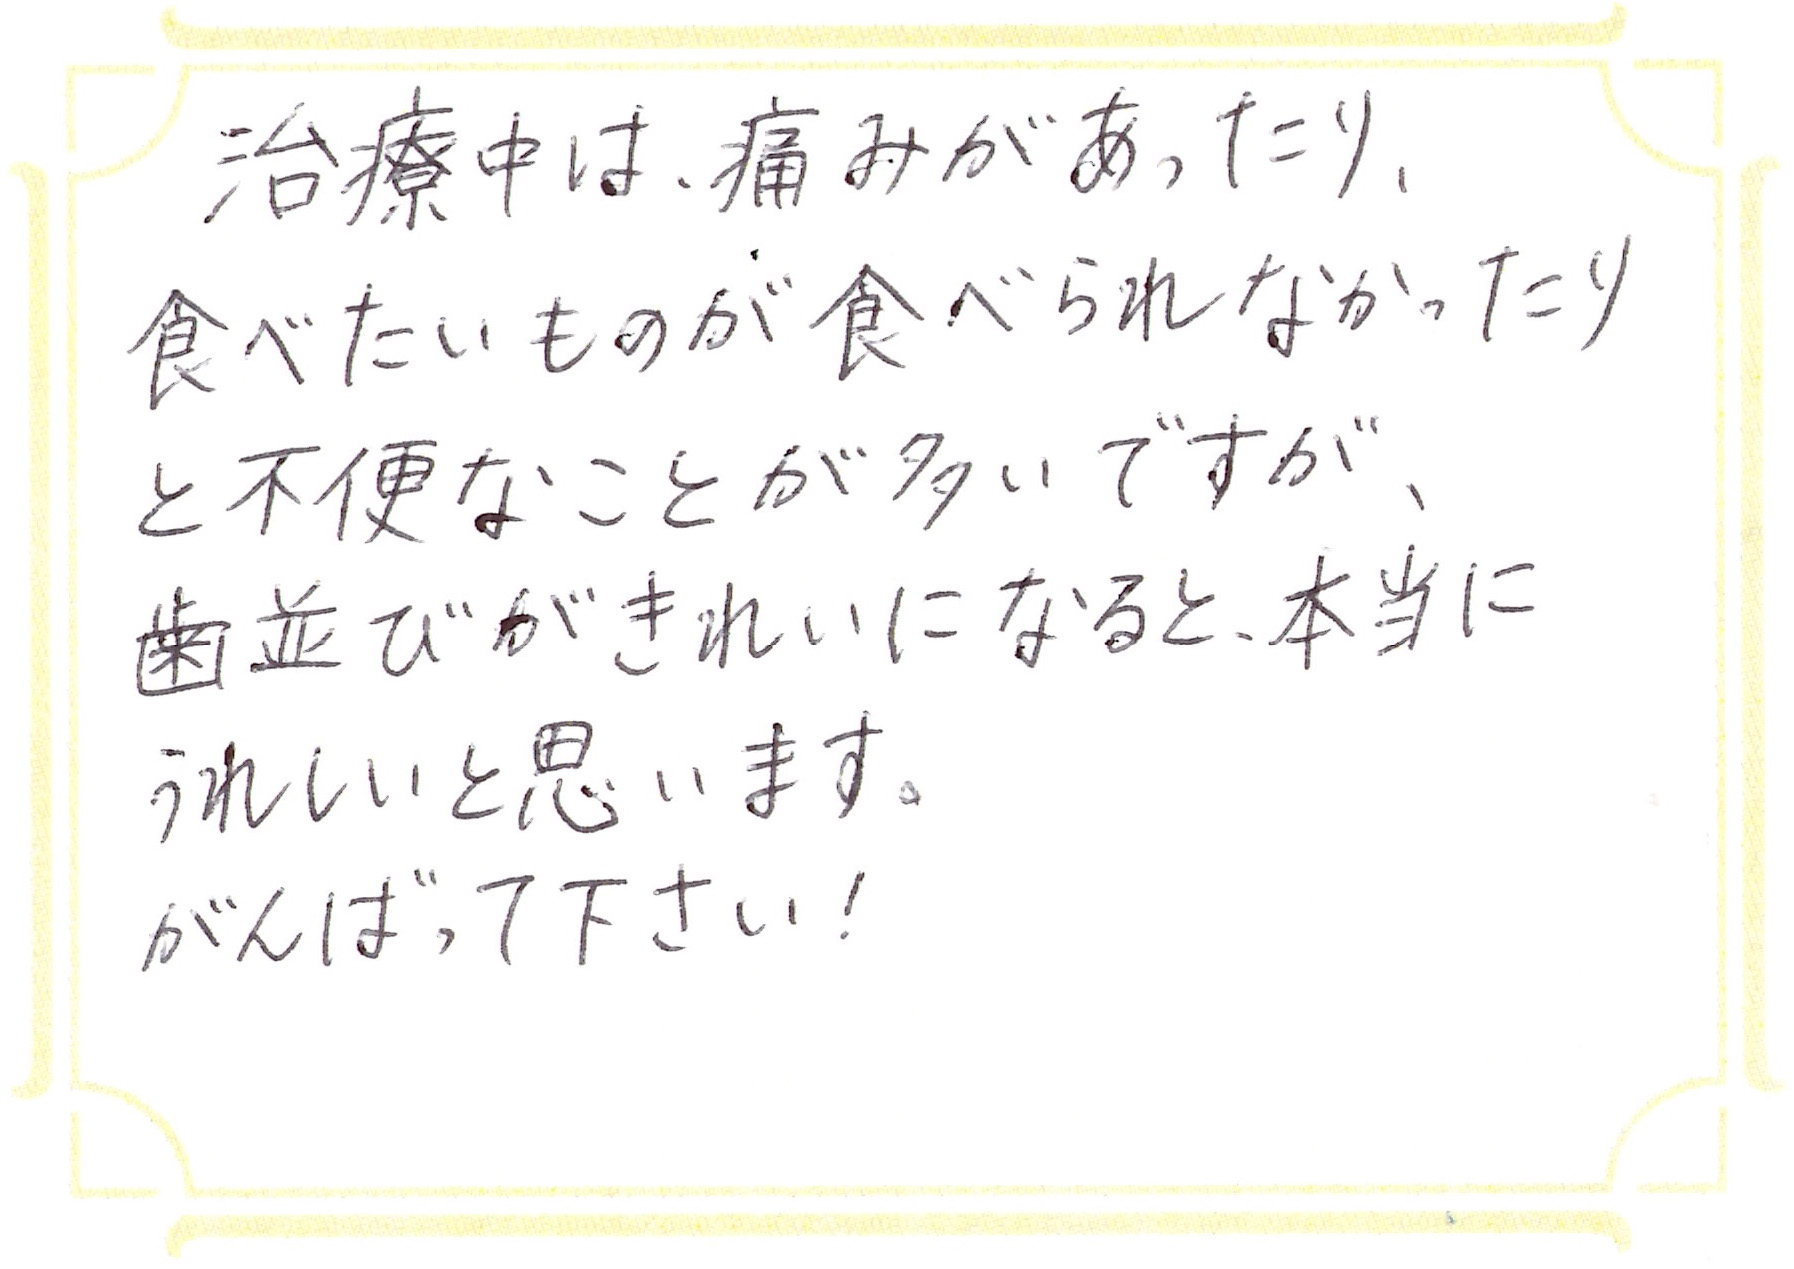 治療中は、痛みがあったり、
食べたいものが食べられなかったり
と不便なことが多いですが、
歯並びがきれいになると、本当に
うれしいと思います。
がんばって下さい!